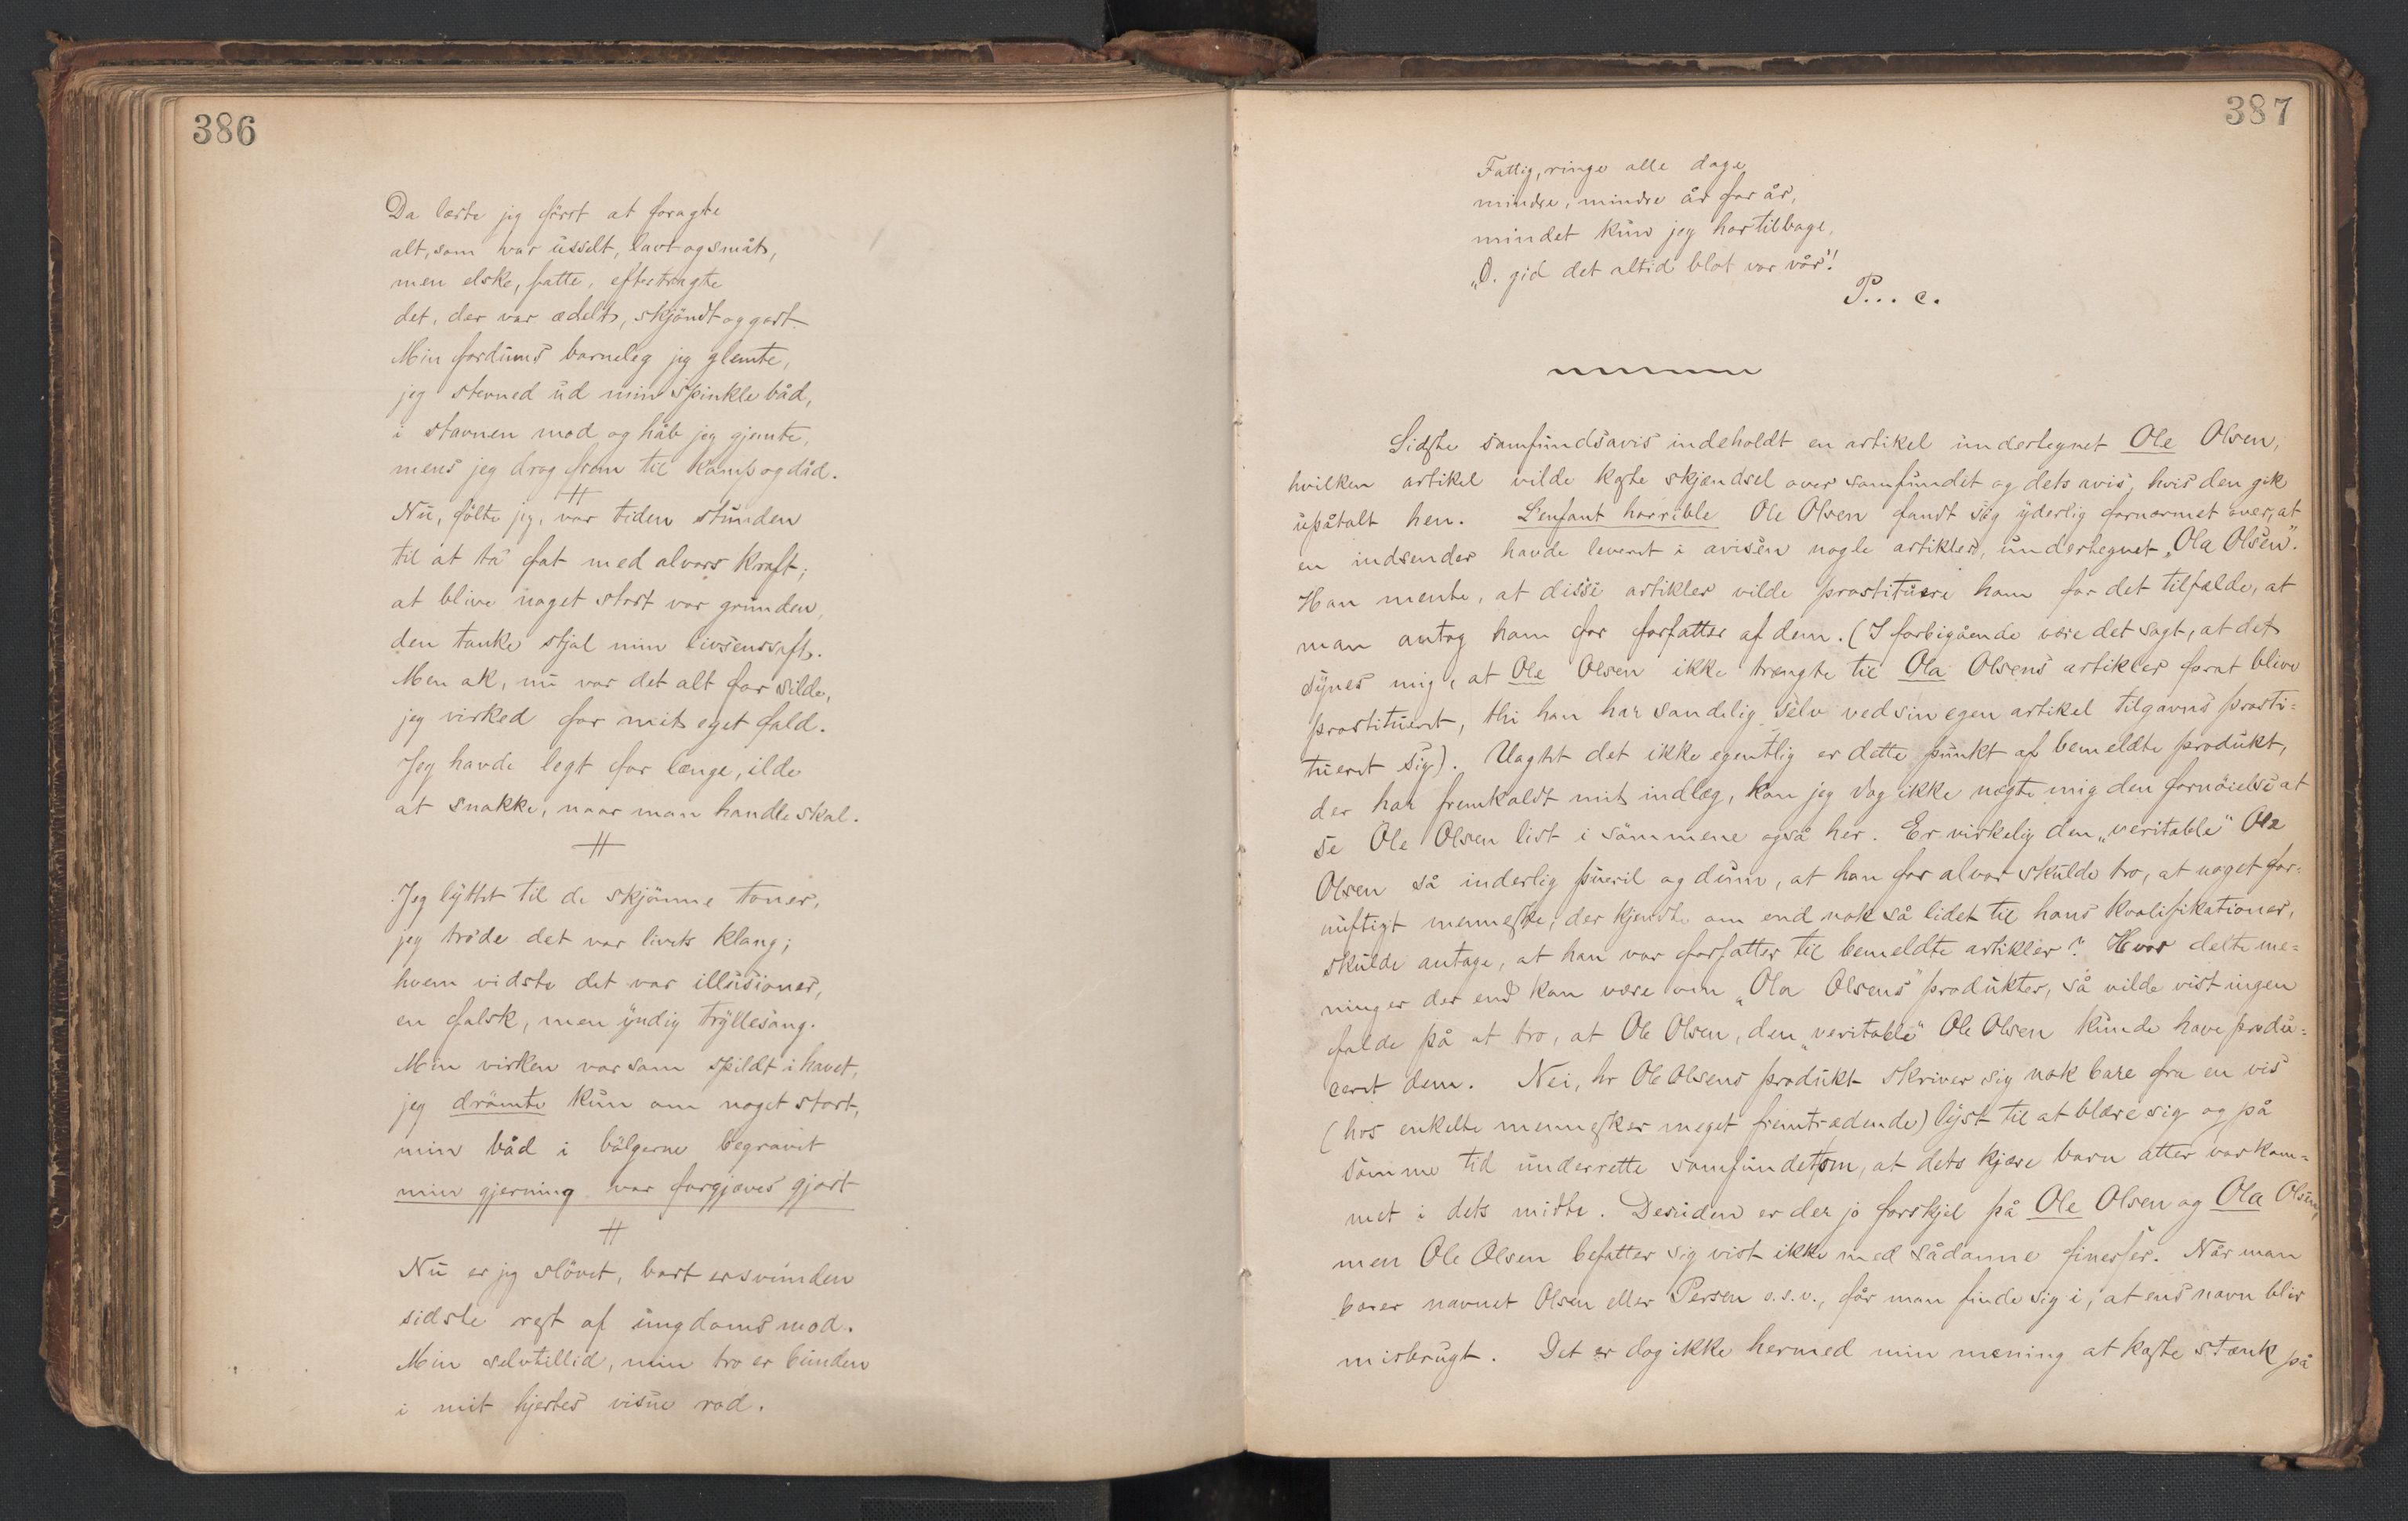 386
Da lærte jeg först at foragte
alt, som var usselt, lavt og småt,
men elske, fatte, eftertragte
det, der var ædelt, skjöndt og godt.
Min fordums barneleg jeg glemte,
jeg stevned ud min spinkle båd,
i stavnen mod og håb jeg gjemte,
mens jeg drog frem til kamp og dåd.
#
Nu, fölte jeg, var tiden stunden
til at ta fat med alvors kraft;
at blive noget stort var grunden,
den tanke stjal min livsenssaft.
Men ak, nu var det alt for silde,
jeg virked for mit eget fald.
Jeg havde legt for længe, ilde
at snakke, naar man handle skal.
#
Jeg lyttet til de skjönne toner,
jeg tro'de det var livets klang;
hvem vidste det var illusioner,
en falsk, men yndig tryllesang.
Min virken var som spildt i havet,
jeg drömte kun om noget stort,
min båd i bölgerne begravet
min gjerning var forgjæves gjort
#
Nu er jeg slövet, bort er svunden
sidste rest af ungdomsmod.
Min selvtillid, min tro er bunden
i mit hjertes visne rod.
387
Fattig, ringe alle dage
mindre, mindre år for år,
mindet kun jeg har tilbage,
„O. gid det altid blot var vår"!
P... e.
Sidste samfundsavis indeholdt en artikel undertegnet Ole Olsen,
hvilken artikel vilde kaste skjændsel over samfundet og dets avis, hvis den gik
upåtalt hen. L'enfant horrible Ole Olsen fandt sig yderlig fornærmet over, at
en indsender havde leveret i avisen nogle artikler, undertegnet „Ola Olsen".
Han mente, at disse artikler vilde prostituere ham for det tilfælde, at
man antog ham for forfatter af dem. (I forbigående være det sagt, at det
synes mig, at Ole Olsen ikke trængte til Ola Olsens artikler forat blive
prostitueret, thi han har sandelig selv ved sin egen artikel tilgavns prosti=
tueret sig). Uagtet det ikke egentlig er dette punkt af bemeldte produkt,
der har fremkaldt mit indlæg, kan jeg dog ikke nægte mig den fornöielse at
se Ole Olsen lidt i sömmene også her. Er virkelig den „veritable" Ole
Olsen så inderlig pueril og dum, at han for alvor skulde tro, at noget for=
nuftigt menneske, der kjendte om end nok så lidet til hans kvalifikationer,
skulde antage, at han var forfatter til bemeldte artikler? Hvor delte me=
ninger der end kan være om „Ola Olsens" produkter, så vilde vist ingen
falde på at tro, at Ole Olsen, den „veritable" Ole Olsen kunde have produ=
ceret dem. Nei, hr Ole Olsens produkt skriver sig nok bare fra en vis
(hos enkelte mennesker meget fremtrædende) lyst til at blære sig og på
samme tid underrette samfundet om, at dets kjære barn atter var kom=
met i dets midte. Desuden er der jo forskjel på Ole Olsen og Ola Olsen,
men Ole Olsen befatter sig vist ikke med sådanne finesser. Når man
bærer navnet Olsen eller Persen o.s.v., får man finde sig i, at ens navn blir
misbrugt. Det er dog ikke hermed min mening at kaste stænk på